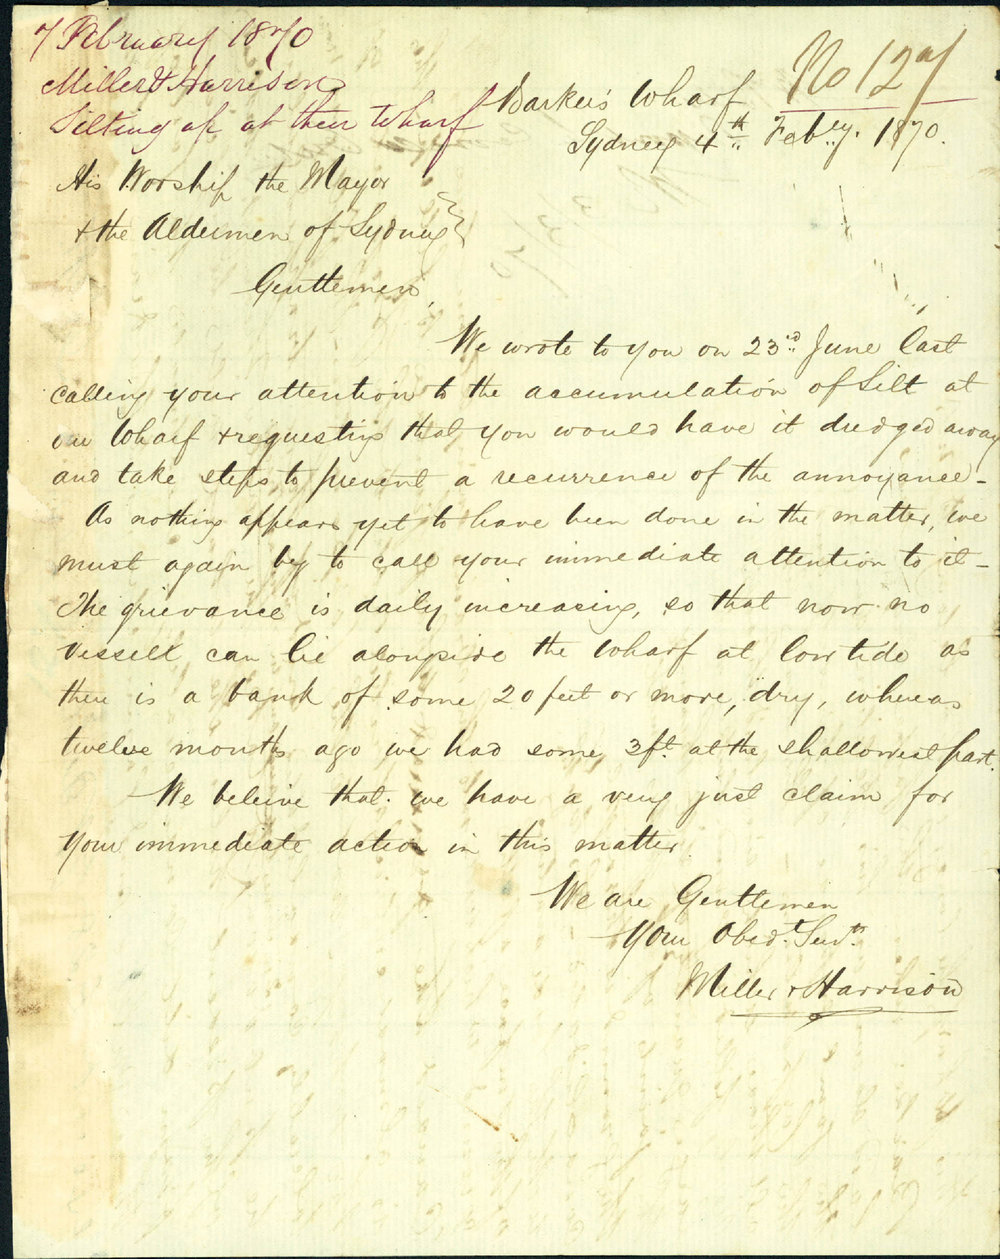 7 February 1870
Miller & Harrison
Silting up at their Wharf
No 127
Barker's Wharf
Sydney 4th Feby. 1870.
His Worship the Mayor
& the Aldermen of Sydney
Gentlemen,
We wrote to you on 23rd June last
calling your attention to the accumulation of Silt at
our Wharf & requesting that you would have it dredged away
and take steps to prevent a recurrence of the annoyance -
As nothing appears yet to have been done in the matter, we
must again beg to call your immediate attention to it -
The grievance is daily increasing, so that now no
Vessell can lie alongside the Wharf at low tide as
there is a bank of some 20 feet or more, dry, whereas
twelve months ago we had some 3ft. at the shallowest part.
We beleive that we have a very just claim for
your immediate action in this matter
We are Gentlemen
Your Obedt. Servts.
Miller & Harrison